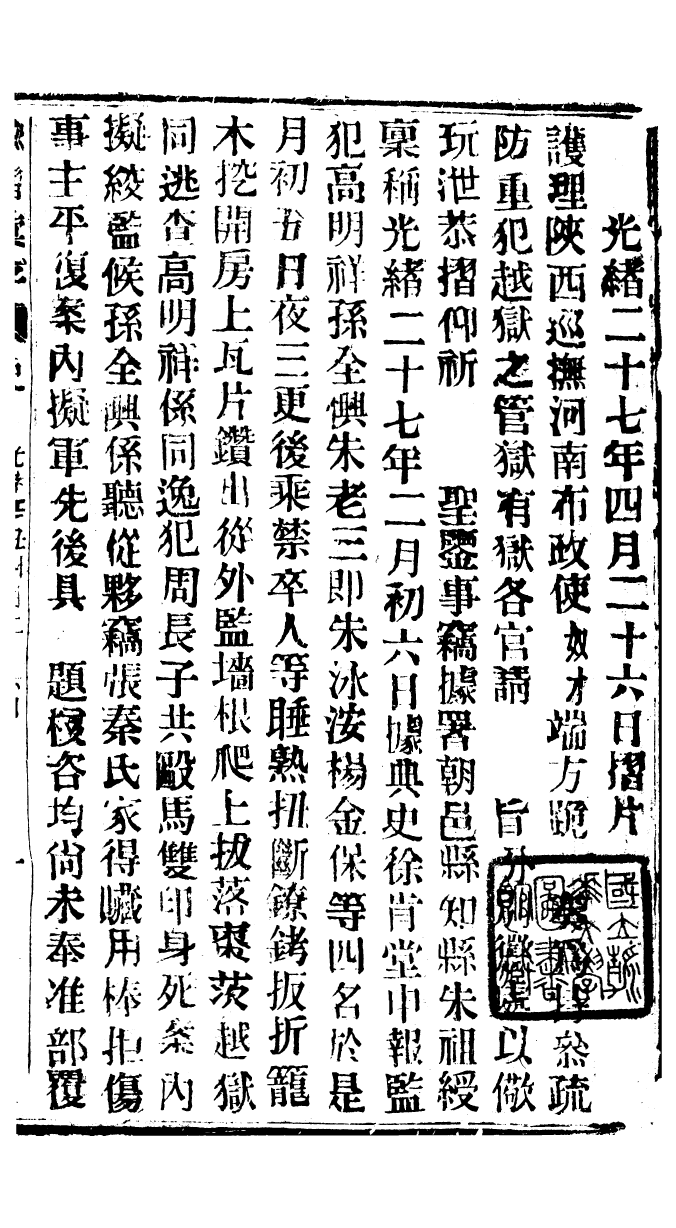 光緒二十七年四月二十六日摺片
護理陝西巡撫河南布政使奴才端方跪 奏爲特叅疏
防重犯越獄之管獄有獄各官請 旨分別懲處以儆
玩泄恭摺仰祈 聖鑒事竊據署朝邑縣知縣朱祖綬
稟稱光緒二十七年二月初六日據典史徐肯堂申報監
犯高明祥孫全興朱老三即朱泳洝楊金保等四名於是
月初五日夜三更後乘禁卒人等睡熟扭斷鐐銬扳折籠
木挖開房上瓦片鑽出從外監墻根爬上拔落棗茨越獄
同逃查高明祥係同逸犯周長子共毆馬雙印身死案內
擬絞監候孫全興係聽從夥竊張秦氏家得贓用棒拒傷
事主平復案內擬軍先後具 題核咨均尚未奉准部覆